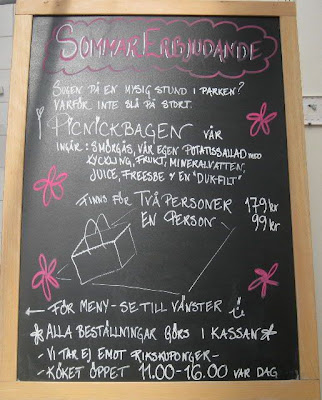 SOMMARERBJUDANDE
SUGEN PÅ EN MYSIG STUND I PARKEN?
VARFÖR INTE SLÅ PÅ STORT.
PICNICKBAGEN VÅR
INGÅR: SMÖRGÅS, VÅR EGEN POTATISSALLAD MED
KYCKLING, FRUKT, MINERALVATTEN,
JUICE, FREESBE & EN "DUK-FILT"
FINNS FÖR TVÅ PERSONER 179 kr
EN PERSON 99 kr
← FÖR MENY - SE TILL VÄNSTER
ALLA BESTÄLLNINGAR GÖRS I KASSAN
- VI TAR EJ EMOT RIKSKUPONGER -
- KÖKET ÖPPET 11.00-16.00 VAR DAG